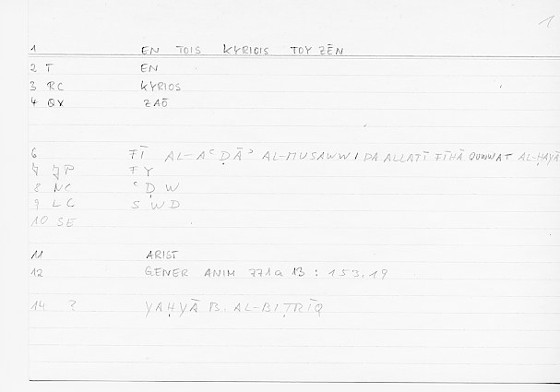 1
1 EN TOIS KYRIOIS TOY ZĒN
2 T EN
3 RC KYRIOS
4 QX ZAŌ
6 FĪ AL-AʿḌĀʾ AL-MUSAWWIDA ALLATĪ FĪHĀ QUWWAT AL-ḤAYĀ
7 JP FY
8 NC ʿḌW
9 LG SWD
10 SE
11 ARIST
12 GENER ANIM 771a13 : 153.19
14 ? YAḤYĀ B. AL-BIṬRĪQ